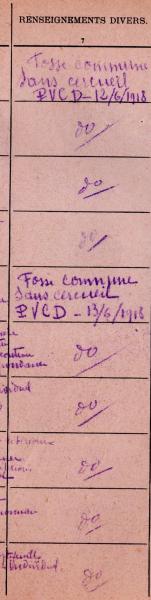 RENSEIGNEMENTS DIVERS.
7
Fosse commune
Sans cercueil
PVCD - 12/6/1918
do
do
do
Fosse commune
Sans cercueil
PVCD - 13/6/1918
do
do
do
do
do